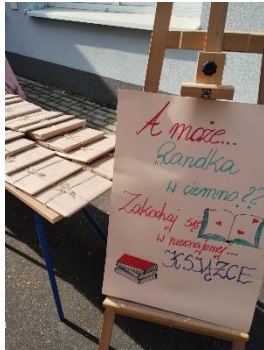 A może...
Randka
w ciemno??
Zakochaj się
w nieznajomej...
KSIĄŻCE